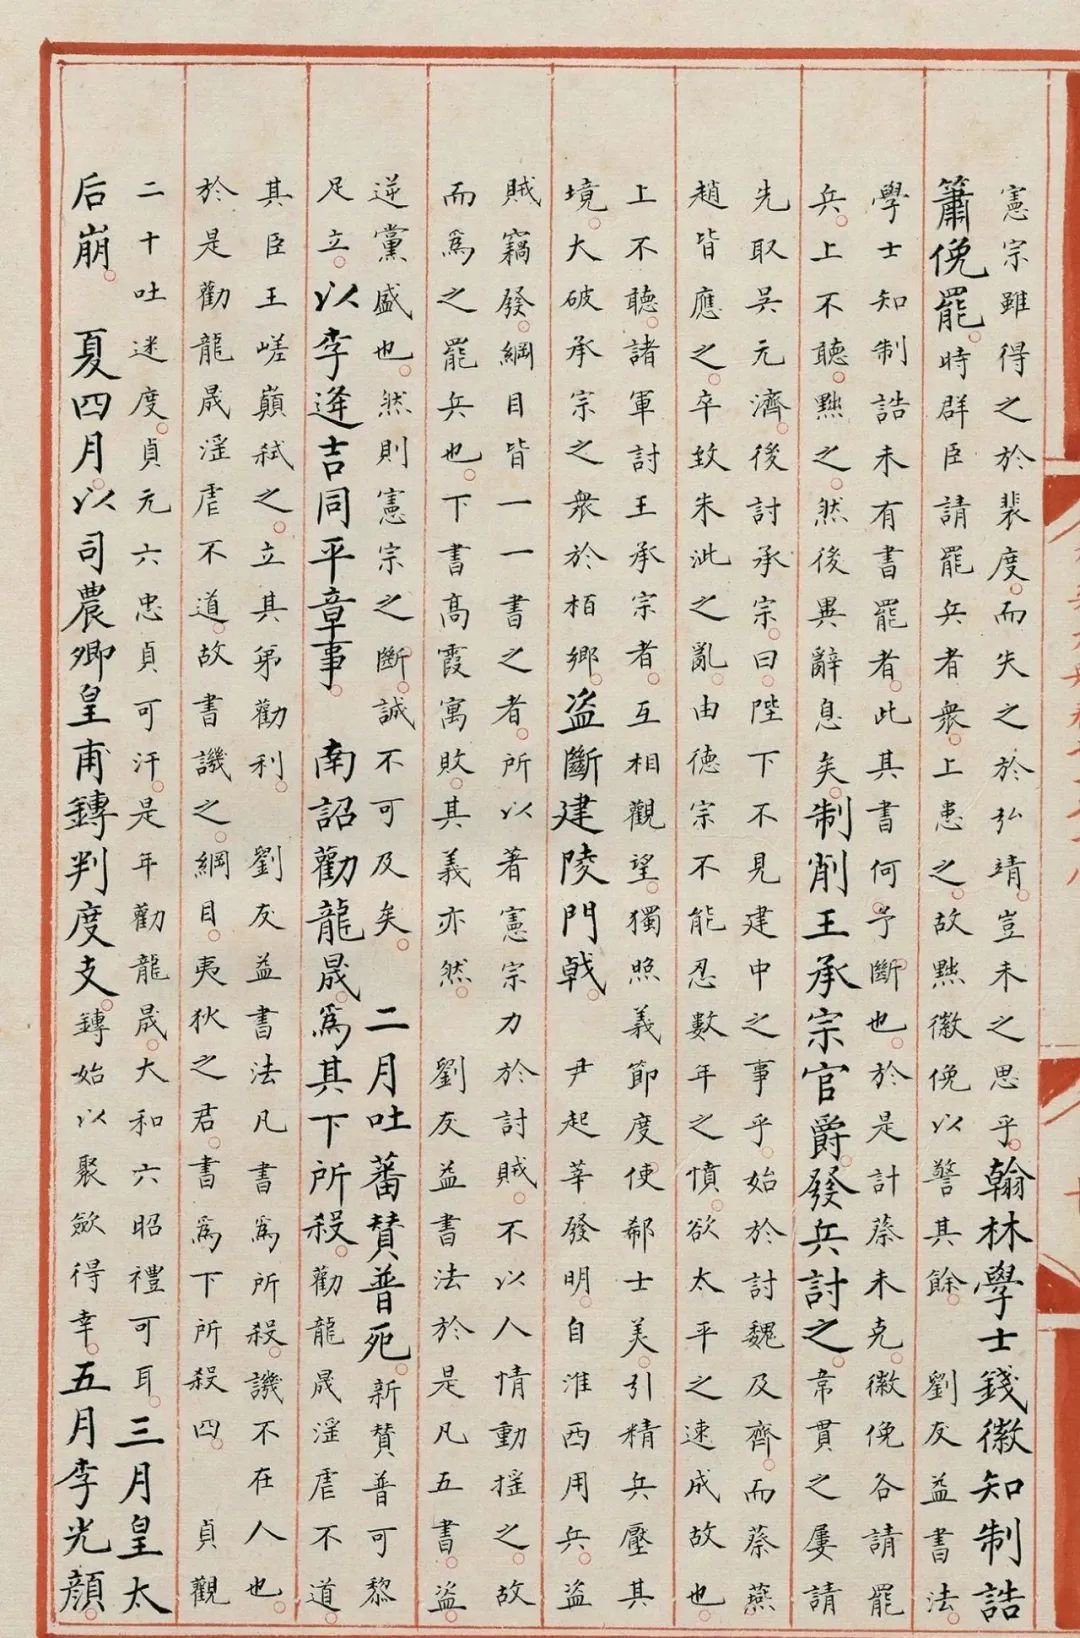 憲宗雖得之於裴度。而失之於弘靖。豈未之思乎。翰林學士錢徽知制誥
蕭俛罷。時群臣請罷兵者衆。上患之。故黜徽俛以警其餘。 劉友益書法。
學士知制誥未有書罷者。此其書何。予斷也。於是計蔡未克。徽俛各請罷
兵。上不聽。黜之。然後異辭息矣。制削王承宗官爵。發兵討之。韋貫之屢請
先取吳元濟。後討承宗。曰。陛下不見建中之事乎。始於討魏及齊。而蔡燕
趙皆應之。卒致朱泚之亂。由德宗不能忍數年之憤。欲太平之速成故也。
上不聽。諸軍討王承宗者。互相觀望。獨照義節度使郗士美。引精兵壓其
境。大破承宗之衆於栢鄉。盜斷建陵門戟。 尹起莘發明。自淮西用兵。盜
賊竊發。綱目皆一一書之者。所以著憲宗力於討賊。不以人情動搖之。故
而爲之罷兵也。下書高霞寓敗。其義亦然。 劉友益書法於是凡五書。盜
逆黨盛也。然則憲宗之斷。誠不可及矣。 二月吐蕃贊普死。新贊普可黎
足立。以李逢吉同平章事。 南詔勸龍晟。爲其下所殺。勸龍晟滛虐不道。
其臣王嵯巔弒之。立其弟勸利。 劉友益書法凡書爲所殺。譏不在人也。
於是勸龍晟滛虐不道。故書譏之。綱目。夷狄之君。書爲下所殺四。 貞觀
二十吐迷度。貞元六忠貞可汗。是年勸龍晟。大和六昭禮可耳。三月皇太
后崩。 夏四月。以司農卿皇甫鏄判度支。鏄始以聚歛得幸。五月李光顔。